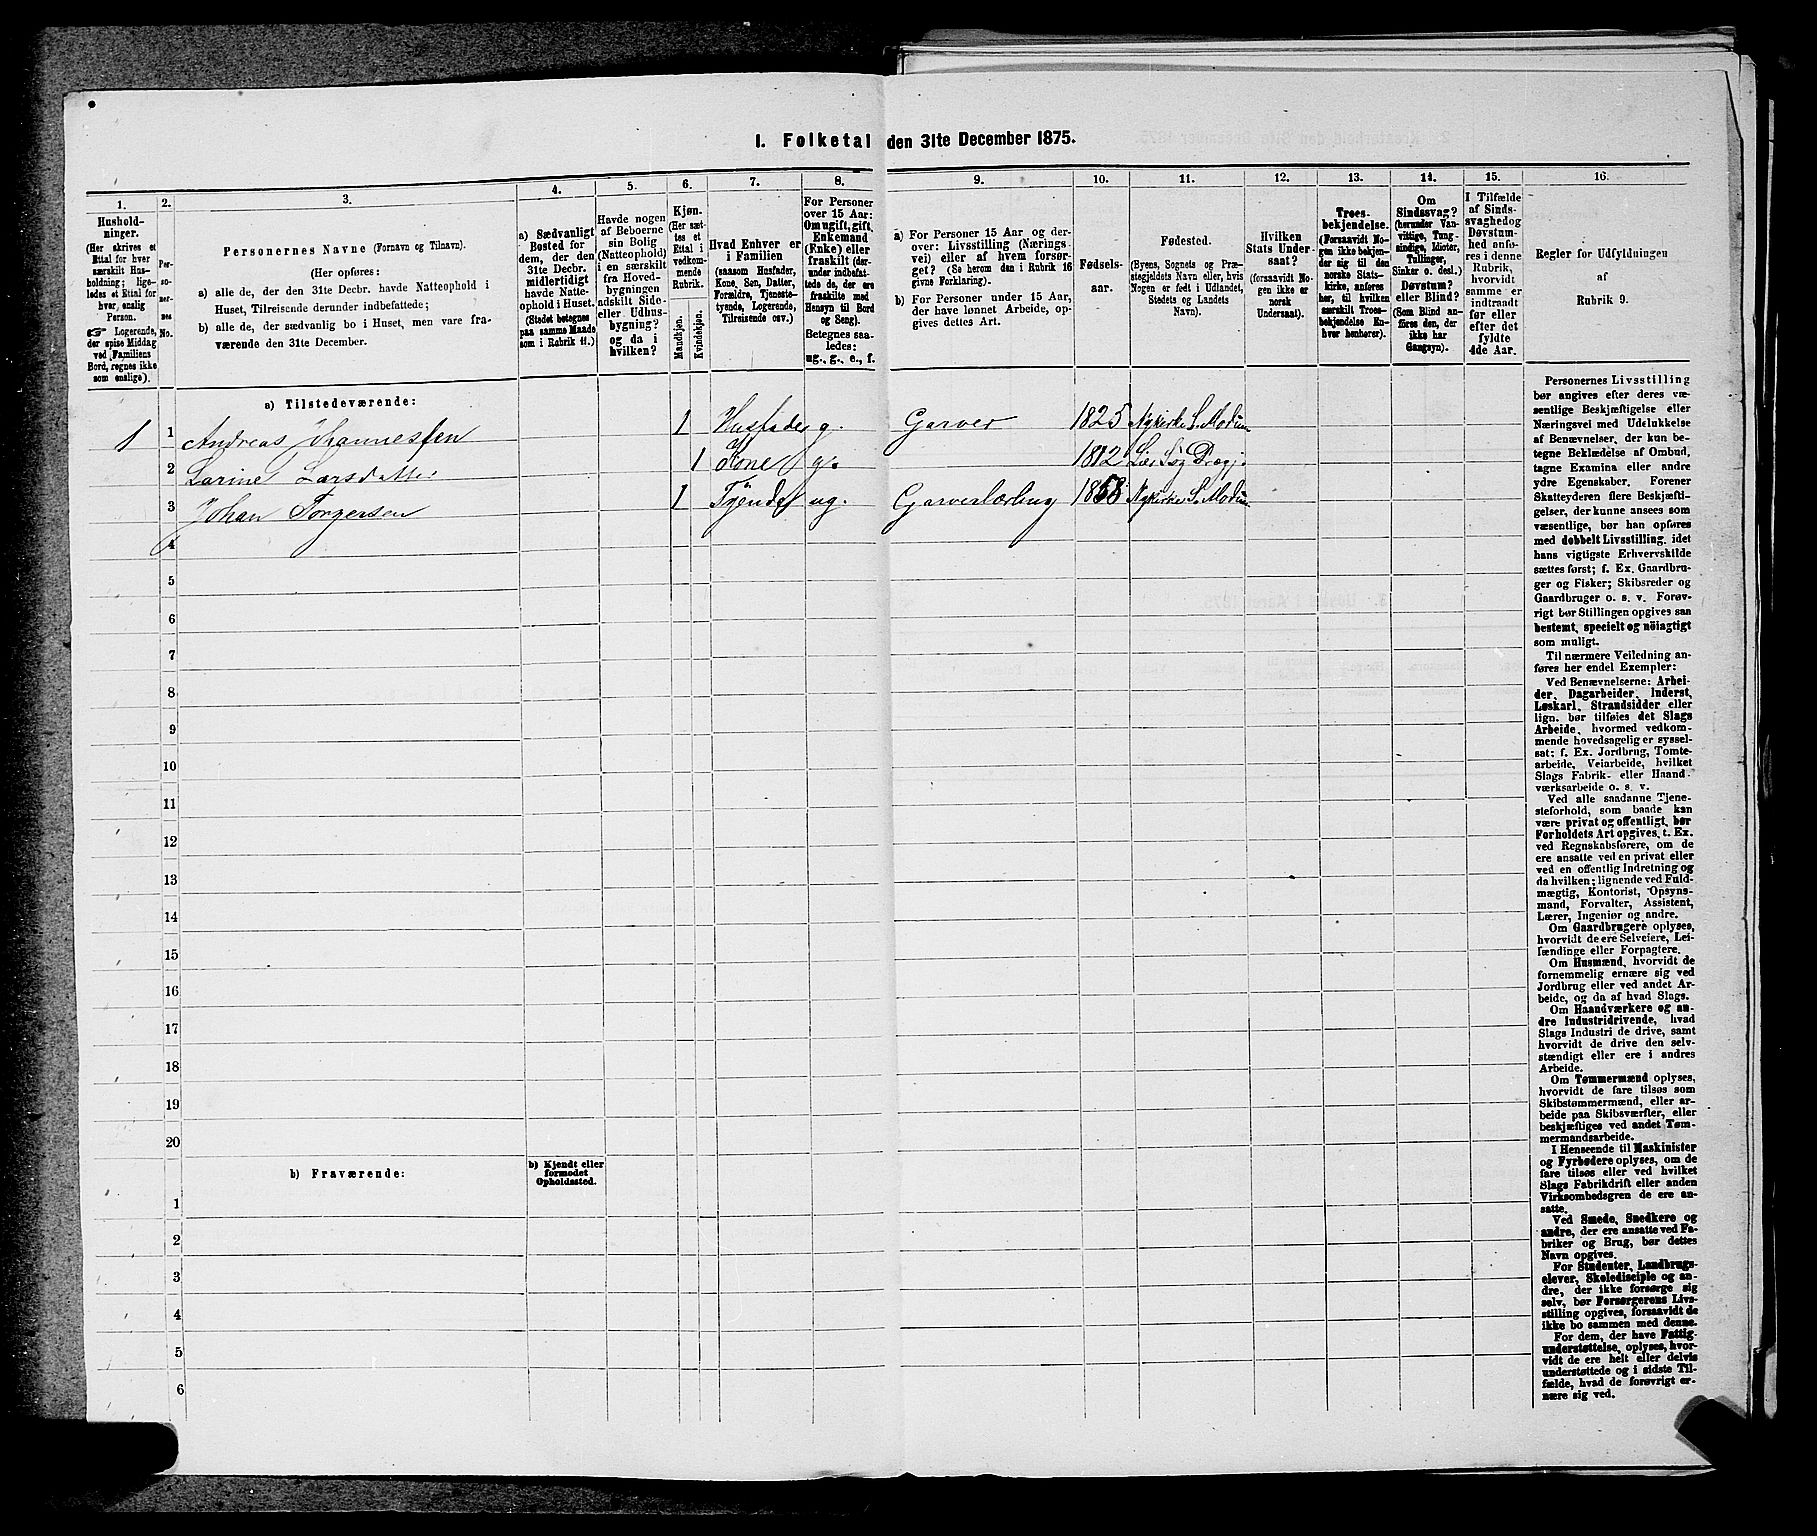 I. Folketal den 31te December 1875.
1. 2. 3. 4. 5. 6. 7. 8. 9. 10. 11. 12. 13. 14. 15. 16.
Hushold-
ninger.
(Her skrives et
Ettal for hver
særskilt Hus-
holdning; lige-
ledes et Ettal for
hver, enslig
Person.
☞ Logerende,
der spise Middag
ved Familiens
Bord, regnes ikke
som enslige).
Per-
so-
ner-
nes
No.
Personernes Navne (Fornavn og Tilnavn).
(Her opføres:
a) alle de, der den 31te Decbr. havde Natteophold i
Huset, Tilreisende derunder indbefattede;
b) alle de, der sædvanlig bo i Huset, men vare fra-
værende den 31te December.
a) Sædvanligt
Bosted for
dem, der den
31te Decbr.
midlertidigt
havde Natte-
ophold i Huset.
(Stedet betegnes
paa samme Maade
som i Rubrik 11.)
Havde nogen
af Beboerne
sin Bolig
(Natteophold)
i en særskilt
fra Hoved-
bygningen
adskilt Side-
eller Udhus-
bygning?
og da i
hvilken?
Kjøn.
(Her sæt-
tes et
Ettal i
vedkom-
mende
Rubrik.
Mandkjøn.
Kvindekjøn.
Hvad Enhver er
i Familien
(saasom Husfader,
Kone, Søn, Datter,
Forældre, Tjeneste-
tyende, Logerende,
Tilreisende osv.)
For Personer
over 15 Aar:
Om ugift, gift,
Enkemand
(Enke) eller
fraskilt (der-
under indbefat-
tede de, der ere
fraskilte med
Hensyn til Bord
og Seng).
Betegnes saa-
ledes:
ug., g., e., f.
a) For Personer 15 Aar og der-
over: Livsstilling (Nærings-
vei) eller af hvem forsør-
get? (Se herom den i Rubrik 16
givne Forklaring).
b) For Personer under 15 Aar,
der have lønnet Arbeide, op-
gives dettes Art.
Fødsels-
aar.
Fødested.
(Byens, Sognets og Præ-
stegjeldets Navn eller, hvis
Nogen er født i Udlandet,
Stedets og Landets
Navn).
Hvilken
Stats Under-
saat?
(forsaavidt No-
gen ikke er
norsk
Undersaat).
Troes-
bekjendelse.
(Forsaavidt No-
gen ikke bekjen-
der sig til den
norske Stats-
kirke, anføres
her, til hvilken
særskilt Troes-
bekjendelse En-
hver henhører).
Om
Sindssvag?
(herunder Van-
vittige, Tung-
sindige, Idioter,
Tullinger,
Sinker o. desl.)
Døvstum?
eller Blind?
(Som Blind an-
føres den, der
ikke har
Gangsyn).
I Tilfælde
af Sinds-
svaghed og
Døvstum-
hed anfø-
res i denne
Rubrik,
hvorvidt
samme er
indtraadt
før eller
efter det
fyldte
4de Aar.
Regler for Udfyldningen
af
Rubrik 9.
a) Tilstedeværende:
1 1 Andreas Johannessen 1 Husfader g. Garver 1825 Nykirke S. Modum
2 Larine Larsdatter 1 Kone g. 1812 Lier
3 Johan Torgersen 1 Tyende ug. Garverlærling 1858 Nykirke S. Modum
4
5
6
7
8
9
10
11
12
13
14
15
16
17
18
19
20
b) Fraværende:
b) Kjendt eller
formodet
Opholdssted.
1
2
3
4
5
6
Personernes Livsstilling
bør angives efter deres væ-
sentlige Beskjæftigelse eller
Næringsvei med Udelukkelse
af Benævnelser, der kun be-
tegne Beklædelse af Ombud,
tagne Examina eller andre
ydre Egenskaber. Forener
Skatteyderen flere Beskjæfti-
gelser, der kunne ansees som
væsentlige, bør han opføres
med dobbelt Livsstilling, idet
hans vigtigste Erhvervskilde
sættes først; f. Ex. Gaardbru-
ger og Fisker; Skibsreder og
Gaardbruger o. s. v. Forøv-
rigt bør Stillingen opgives saa
bestemt, specielt og nöiagtigt
som muligt.
Til nærmere Veiledning an-
føres her endel Exempler:
Ved Benævnelserne: Arbei-
der, Dagarbeider, Inderst,
Løskarl, Strandsidder eller
lign. bør tilføies det Slags
Arbeide, hvormed vedkom-
mende hovedsagelig er syssel-
sat; f. Ex. Jordbrug, Tomte-
arbeide, Veiarbeide, hvilket
Slags Fabrik- eller Haand-
værksarbeide o. s. v.
Ved alle saadanne Tjene-
steforhold, som baade kan
være privat og offentligt, bør
Forholdets Art opgives, t. Ex.
ved Regnskabsførere, om de
ere ansatte ved en privat eller
ved en offentlig Indretning og
da hvilken; lignende ved Fuld-
mægtig, Kontorist, Opsyns-
mand, Forvalter, Assistent,
Lærer, Ingeniør og andre.
Om Gaardbrugere oplyses,
hvorvidt de ere Selveiere, Lei-
lændinge eller Forpagtere.
Om Husmænd, hvorvidt de
fornemmelig ernære sig ved
Jordbrug eller ved andet Ar-
beide, og da af hvad Slags.
Om Haandværkere og an-
dre Industridrivende, hvad
Slags Industri de drive, samt
hvorvidt de drive den selv-
stændigt eller ere i andres
Arbeide.
Om Tømmermænd oplyses,
hvorvidt de fare tilsøs som
Skibstømmermænd, eller ar-
beide paa Skibsværfter, eller
beskjæftiges ved andet Tøm-
mermandsarbeide.
I Henseende til Maskinister
og Fyrbødere oplyses, om de
fare tilsøs eller ved hvilket
Slags Fabrikdrift eller anden
Virksomhedsgren de ere an-
satte.
Ved Smede, Snedkere og
andre, der ere ansatte ved Fa-
briker og Brug, bør dettes
Navn opgives.
For Studenter, Landbrugs-
elever, Skoledisciple og an-
dre, der ikke forsørge sig
selv, bør Forsørgerens Livs-
stilling opgives, forsaavidt de
ikke bo sammen med denne.
For dem, der have Fattig-
understøttelse, oplyses, hvor-
vidt de ere helt eller delvis
understøttede og i sidste Til-
fælde, hvad de forøvrigt er-
nære sig ved.